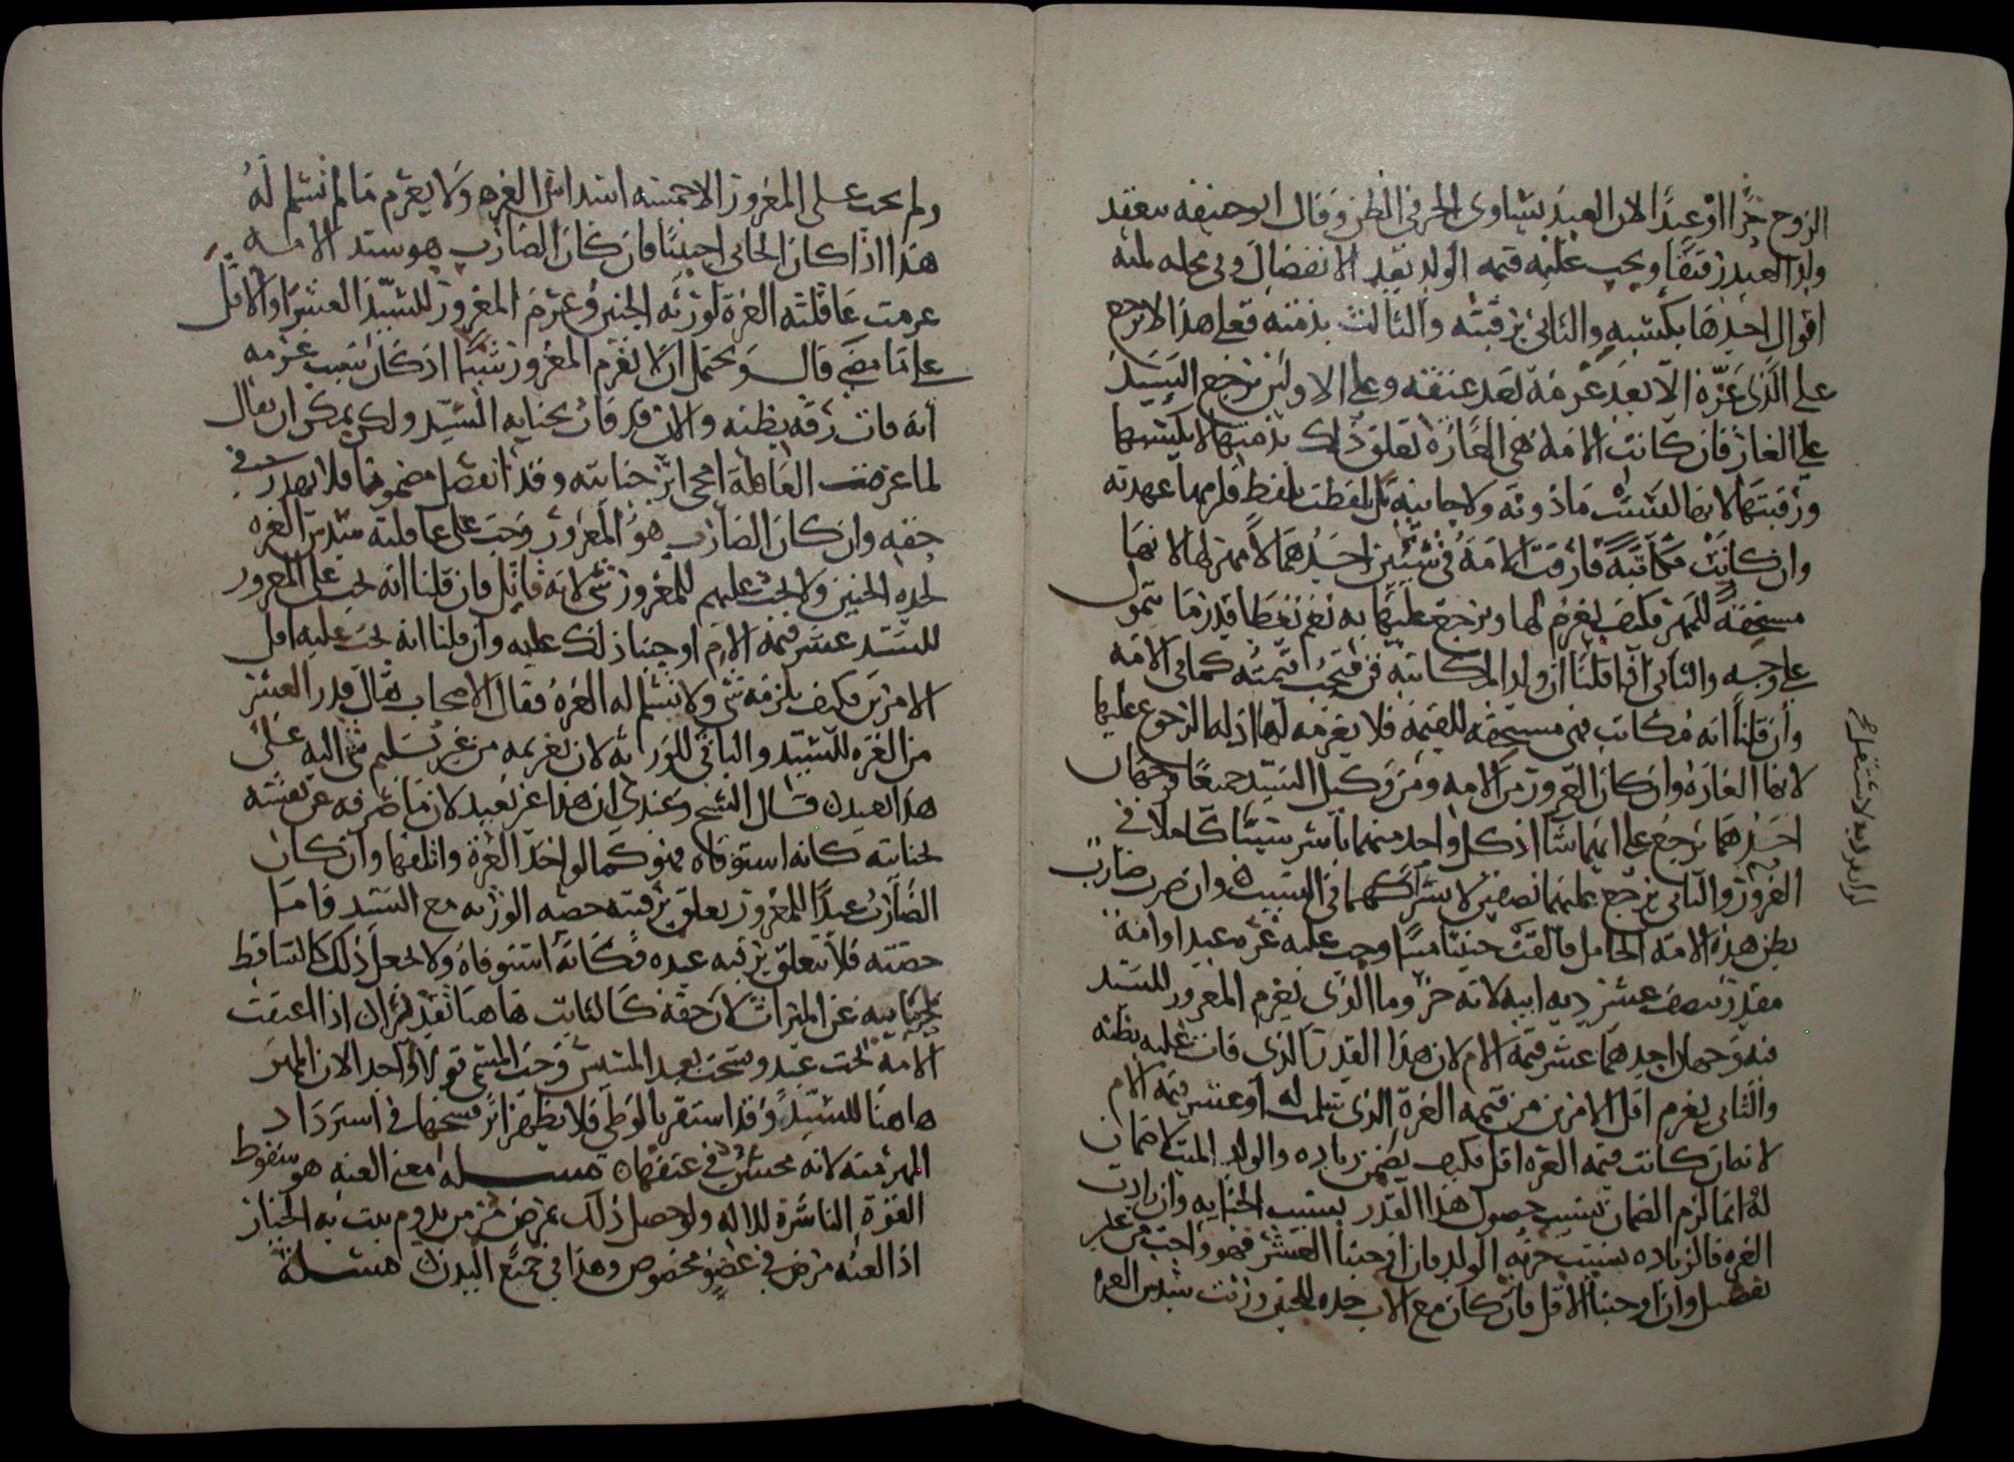 الزوج حرا او عبدا لان العبد يساوى الحر في الظن وقال ابو حنيفه ينعقد
ولد العبد رقيقا ويجب عليه قيمه الولد بعد الانفصال وفي محله ثلثه
اقوال احدها بكسبه والثاني برقبته والثالث بذمته فعلى هذا لا يرجع
على الذي غره الا بعد غرمه بعد عتقه وعلى الاولين يرجع السيد
على الغار فان كانت الامة هي الغارة تعلق ذلك بذمتها لا بكسبها
ورقبتها لانها ليست ماذونة ولا جانية بل تلفظت بلفظ فلزمها عهدته
وان كانت مكاتبة فارقت الامة في شيئين احدهما لا مهر لها لانها
مستحقة للمهر فكيف يغرم لها ويرجع عليها به نعم نعطها قدر ما يتمول
على وجه والثاني اذا قلنا ان ولد المكاتبة قن فيجب قيمته كما في الامة
وان قلنا انه مكاتب فهي مستحقه للقيمة فلا يغرمه لها اذ له الرجوع عليها
لانها الغارة وان كان الغرور من الامه ومن وكيل السيد جميعا وجهان
احدهما يرجع على ايهما شا اذ كل واحد منهما باشر سببا كاملا في
الغرور والثاني يرجع عليهما نصفين لاشتراكهما في السبب وان ضرب ضارب
بطن هذه الامة الحامل فالقت جنينا ميتا وجب عليه غرة عبد او امة
مقدر بنصف عشر دية ابيه لانه حر وما الذى يغرم المغرور للسيد
فيه وجهان احدهما عشر قيمة الام لان هذا القدر الذى فات عليه بظنه
والثاني يغرم اقل الامرين من قيمة الغرة الذى يسلم له او عشر قيمة الام
لانه ان كانت قيمه الغرة اقل فكيف يضمن زياده والولد الميت لا ضمان
له انما لزم الضمان بسبب حصول هذا القدر بسبب الجنايه وان زادت
الغره فالزياده بسبب حرية الولد فان اوجبنا العشر فهو واجب من غير
تفصيل وان اوجبنا الاقل فان كان مع الاب جده للجنين ورثت سدس الغرة
ولم يجب على المغرور الا خمسة اسداس الغره ولا يغرم ما لم يسلم له
هذا اذا كان الجاني اجنبيا فان كان الضارب هو سيد الامة
غرمت عاقلته الغرة لورثة الجنين وغرم المغرور للسيد العشر او الاقل
على ما مضى قال ويحتمل ان لا يغرم المغرور شيا اذ كان سبب غرمه
انه فات رقه بظنه والان قد فات بجناية السيد ولكن يمكن ان يقال
لما غرمت العاقلة امحى اثر جنايته وقد انفصل مضمونا فلا يهدر في
حقه وان كان الضارب هو المغرور وجب على عاقلته سدس الغره
لجدة الجنين ولا يجب عليهم للمغرور شي لانه قاتل فان قلنا انه يجب على المغرور
للسيد عشر قيمة الام اوجبنا ذلك عليه وان قلنا انه يجب عليه اقل
الامرين فكيف يلزمه شي ولا يسلم له الغرة فقال الاصحاب يقال قدر العشر
من الغره للسيد والباقي للورثه لان تغريمه من غير تسليم شي اليه على
هذا بعيد قال الشيخ وعندي ان هذا غير بعيد لان ما صرفه عن نفسه
بجنايته كانه استوفاه فهو كما لو اخذ الغرة واتلفها وان كان
الضارب عبدا للمغرور تعلق برقبته حصه الورثه مع السيد فاما
حصته فلا تتعلق برقبه عبده فكانه استوفاه ولا يجعل ذلك كالساقط
بجنايته عن الميراث لان حقه كالثابت هاهنا تقديرا ان اذا اعتقت
الامة تحت عبد وفسخت بعد المسيس وجب المسمى قولا واحدا لان المهر
هاهنا للسيد وقد استقر بالوطى فلا يظهر اثر فسخها في استرداد
المهر منه لانه محسن في عتقها مسله معنى العنه هو سقوط
القوة الناشرة للاله ولو حصل ذلك بمرض مزمن يدوم يثبت به الخيار
اذ العنه مرض في عضو مخصوص وهذا في جميع البدن مسلة